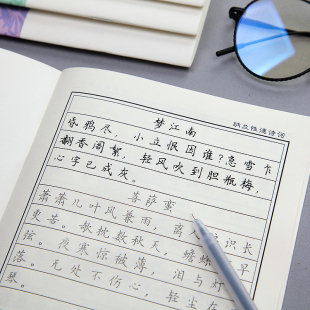 纳兰性德诗词
梦江南
昏鸦尽，小立恨因谁？急雪乍
翻香阁絮，轻风吹到胆瓶梅，
心字已成灰。
菩萨蛮
萧萧几叶风兼雨，离人识长
更苦。欹枕数秋天，蟾蜍早
弦。夜寒惊被薄，泪与灯
落。无处不伤心，轻尘在
琴。